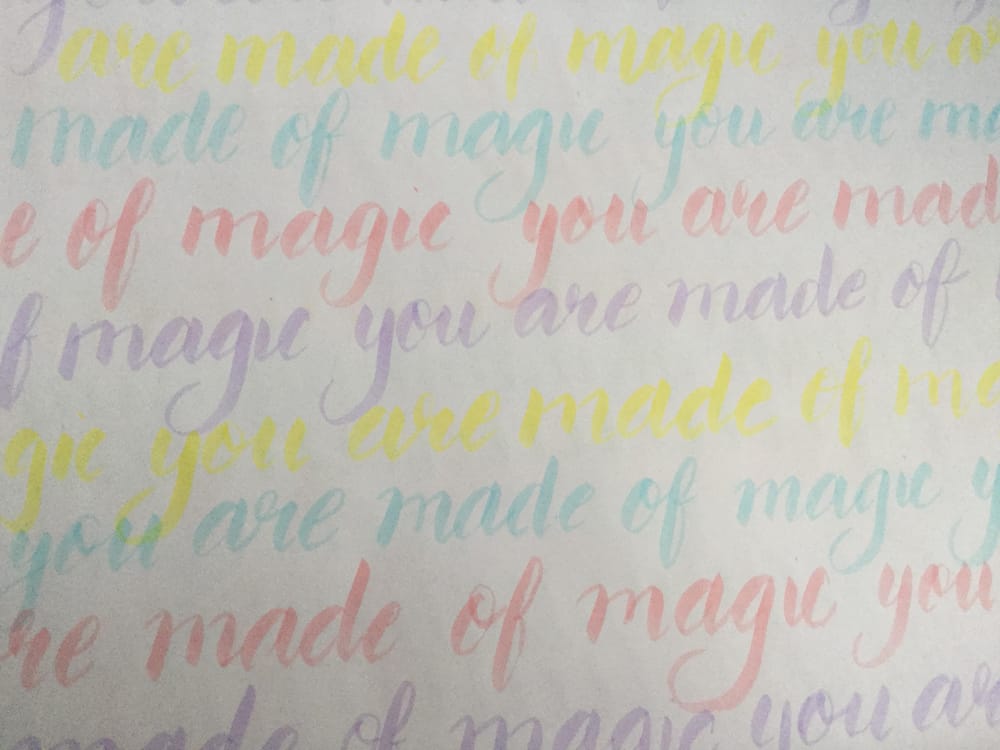 made of magic
are made of magic you ar
made of magic you are ma
e of magic you are mad
f magic you are made of
gic you are made of ma
you are made of magic y
re made of magic you
made of magic you ar